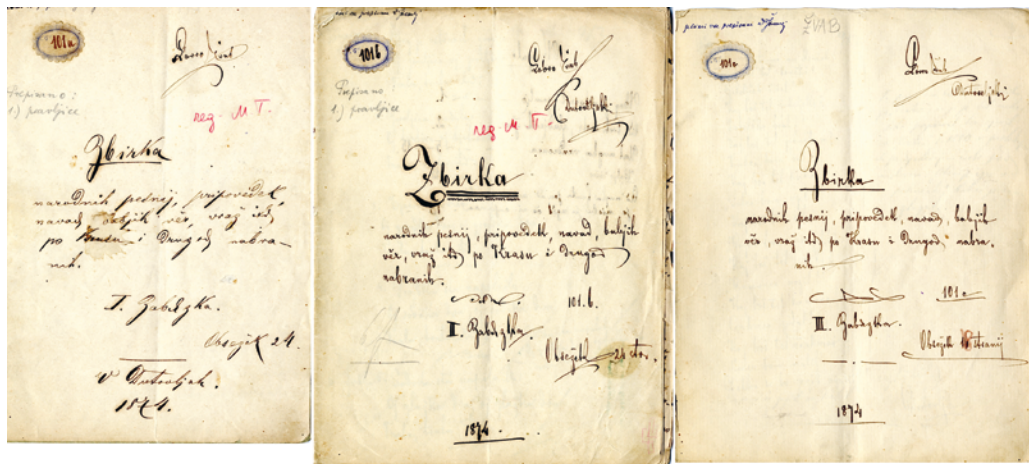 101a
Prepisano:
1.) pravljice
reg. M T.
Zbirka
narodnih pesnij, pripovedek,
navad, babjih vér, vraž itd,
po Krasu i drugod nabra-
nih.
I. Zabilězka.
Obsežek 24.
V Dutovljah.
1874.
101b
Prepisano
1.) pravljice
reg M T.
Zbirka
narodnih pesnij, pripovedek, navad, babjih
vér, vraž itd po Krasu i drugod
nabranih.
101.b.
II. Zabilězka
Obsežek 24 str.
1874.
pesmi na prepisani
ŽVAB
101c
Dutovljski
Zbirka
narodnih pesnij, pripovedek, navad, babjih
vér, vraž itd, po Krasu i drugod nabra-
nih.
101c
III. Zabilězka.
Obsežek
1874